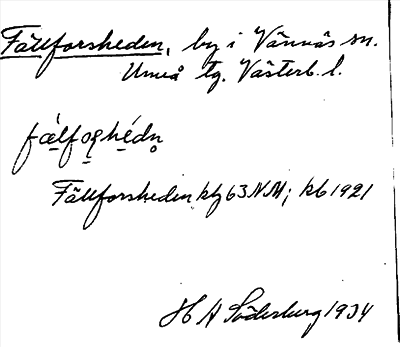 Fällforsheden, by i Vännäs sn.
Umeå tg. Västerb. l.
fǽlfoʂhédn̥
Fällforsheden ktg 63 NM; kb 1921
H A Söderberg 1934